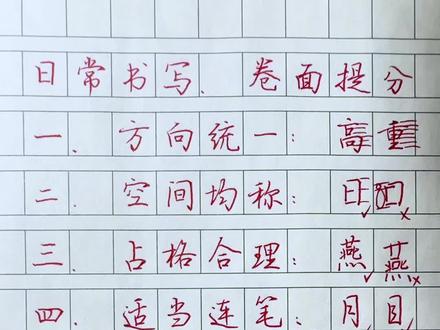 日常书写. 卷面提分
一. 方向统一: 高重
二. 空间均称: 日四
三. 占格合理: 燕燕
四. 适当连笔: 月目